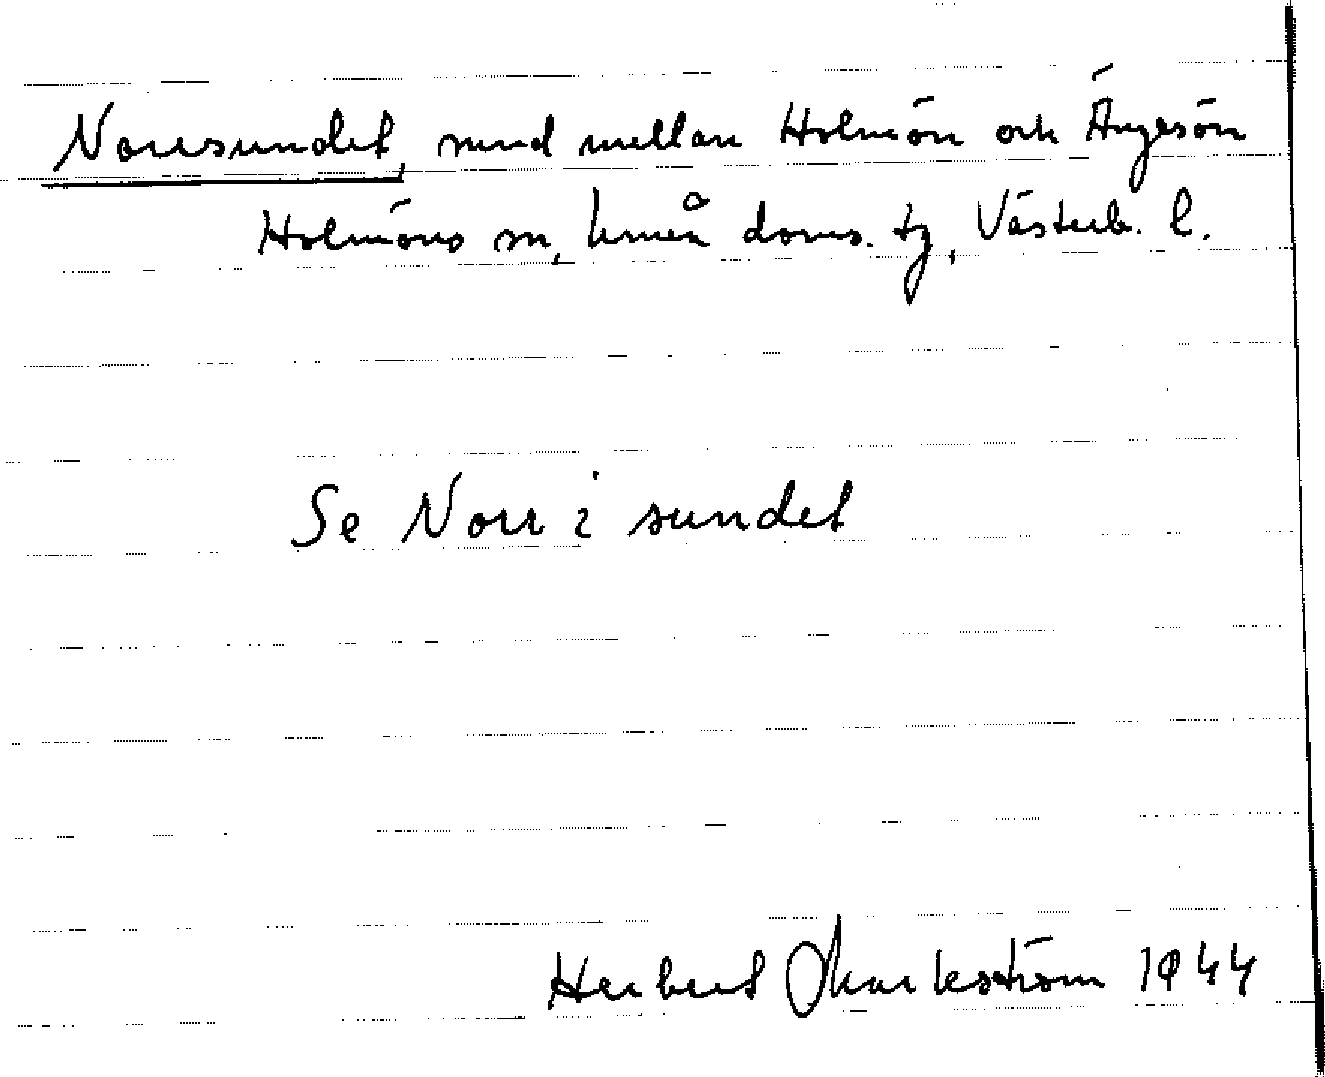 Norrsundet, sund mellan Holmön och Ängesön
Holmöns sn, Umeå doms. tg, Västerb. l.
Se Norr i sundet
Herbert Markström 1944